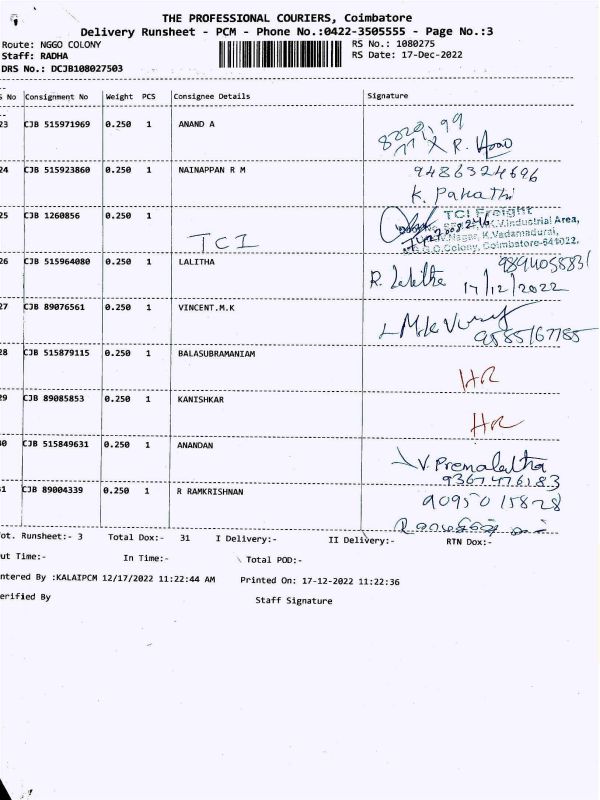 THE PROFESSIONAL COURIERS, Coimbatore
Delivery Runsheet - PCM - Phone No.:0422-3505555 - Page No.:3
Route: NGGO COLONY RS No.: 1080275
Staff: RADHA RS Date: 17-Dec-2022
DRS No.: DCJB108027503
S No Consignment No Weight PCS Consignee Details Signature
23 CJB 515971969 0.250 1 ANAND A
24 CJB 515923860 0.250 1 NAINAPPAN R M 9486324696
K. Pakathi
25 CJB 1260856 0.250 1 TCI Freight
TCI
G.G.O.Colony, Coimbatore-641022.
26 CJB 515964080 0.250 1 LALITHA
R. Lalitha 17/12/2022
27 CJB 89076561 0.250 1 VINCENT.M.K
9585167785
28 CJB 515879115 0.250 1 BALASUBRAMANIAM
HR
29 CJB 89085853 0.250 1 KANISHKAR
HR
30 CJB 515849631 0.250 1 ANANDAN
V. Premalatha
9367476183
31 CJB 89004339 0.250 1 R RAMKRISHNAN 9095015828
ot. Runsheet:- 3 Total Dox:- 31 I Delivery:- II Delivery:- RTN Dox:-
ut Time:- In Time:- Total POD:-
ntered By :KALAIPCM 12/17/2022 11:22:44 AM Printed On: 17-12-2022 11:22:36
erified By Staff Signature